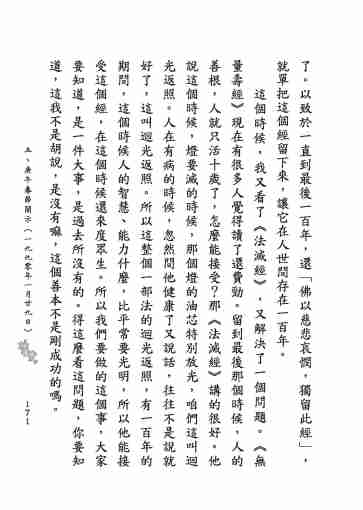 了。以致於一直到最後一百年，還「佛以慈悲哀憫，獨留此經」，
就單把這個經留下來，讓它在人世間存在一百年。
這個時候，我又看了《法滅經》，又解決了一個問題。《無
量壽經》現在有很多人覺得讀了還費勁。留到最後那個時候，人的
善根，人就只活十歲了，怎麼能接受？那《法滅經》講的很好。他
說這個時候，燈要滅的時候，那個燈的油芯特別放光，咱們這叫迴
光返照。人在有病的時候，忽然間他健康了又說話，往往不是說就
好了，這叫迴光返照。所以這整個一部法的迴光返照，有一百年的
期間，這個時候人的智慧、能力什麼，比平常要光明，所以他能接
受這個經，在這個時候還來度眾生。所以我們要做的這個事，大家
要知道，是一件大事，是過去所沒有的。得這麼看這問題，你要知
道，這我不是胡說，是沒有嘛，這個善本不是剛成功的嗎。
五、庚午春節開示（一九九零年一月廿九日）
171